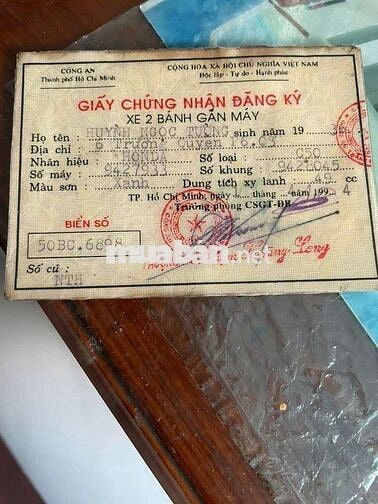 CÔNG AN
Thành phố Hồ Chí Minh
CỘNG HÒA XÃ HỘI CHỦ NGHĨA VIỆT NAM
Độc lập - Tự do - Hạnh phúc
GIẤY CHỨNG NHẬN ĐĂNG KÝ
XE 2 BÁNH GẮN MÁY
Họ tên : HUỲNH NGỌC TƯỜNG sinh năm 19
Địa chỉ : 6 Trương Quyền F6.Q3
Nhãn hiệu : HONDA Số loại : C50
Số máy : 9427933 Số khung : 9421045
Màu sơn : Xanh Dung tích xy lanh : 49 cc
TP. Hồ Chí Minh, ngày tháng /199 4
Trưởng phòng CSGT-ĐB
BIỂN SỐ
50BC.6898
Số cũ :
NTH
muaban.net